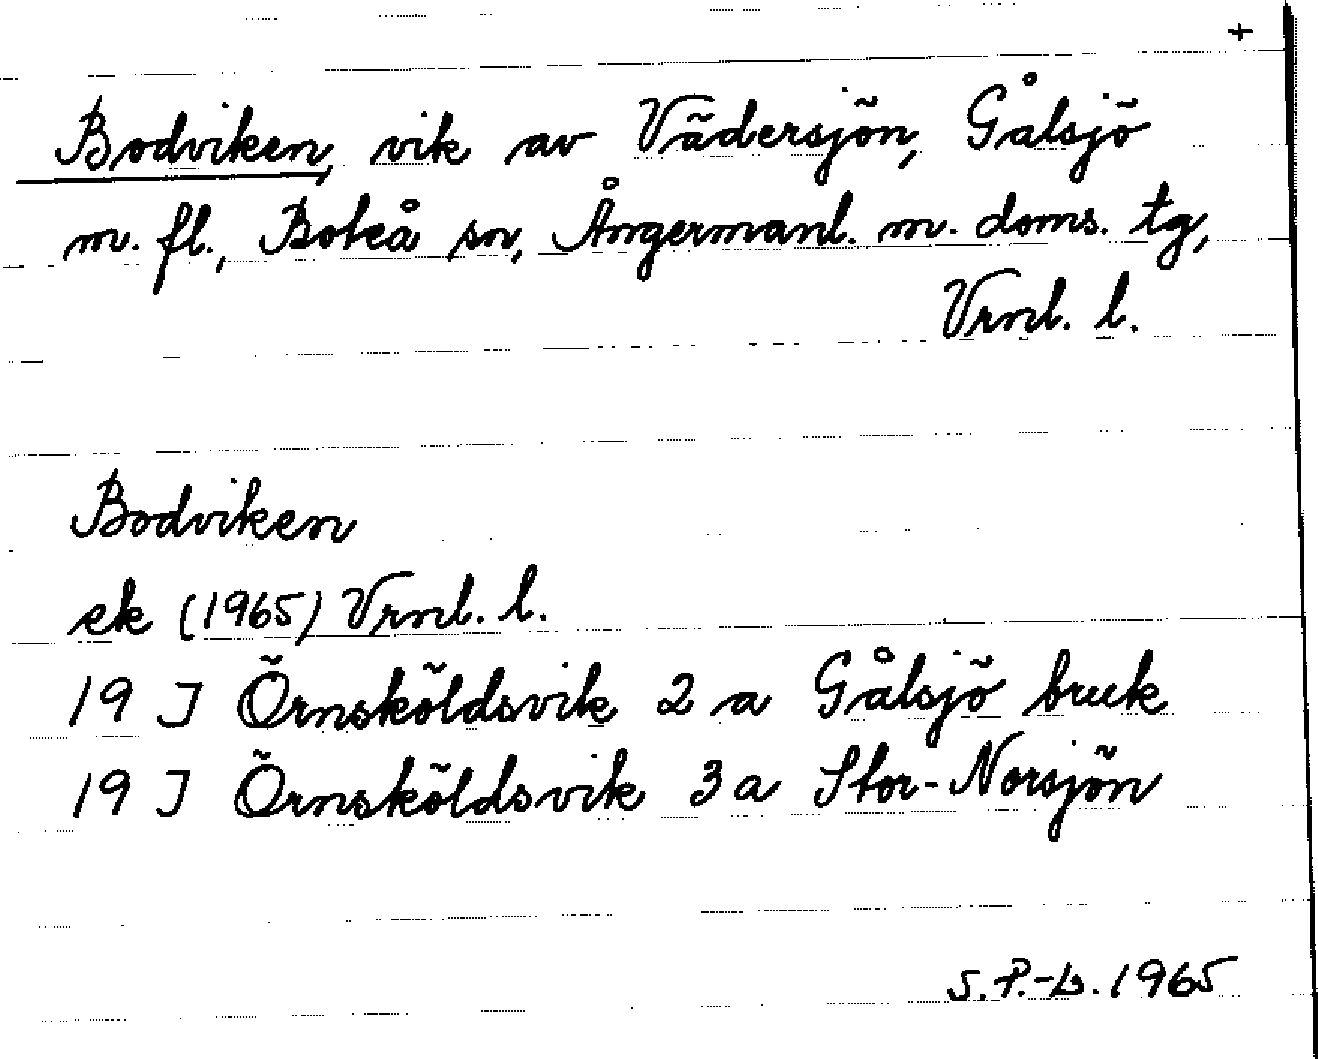 +
Bodviken, vik av Vädersjön, Gålsjö
m. fl., Boteå sn, Ångermanl. m. doms. tg,
Vrnl. l.
Bodviken
ek (1965) Vrnl. l.
19 J Örnsköldsvik 2 a Gålsjö bruk
19 J Örnsköldsvik 3 a Stor-Norsjön
S.P.-L. 1965